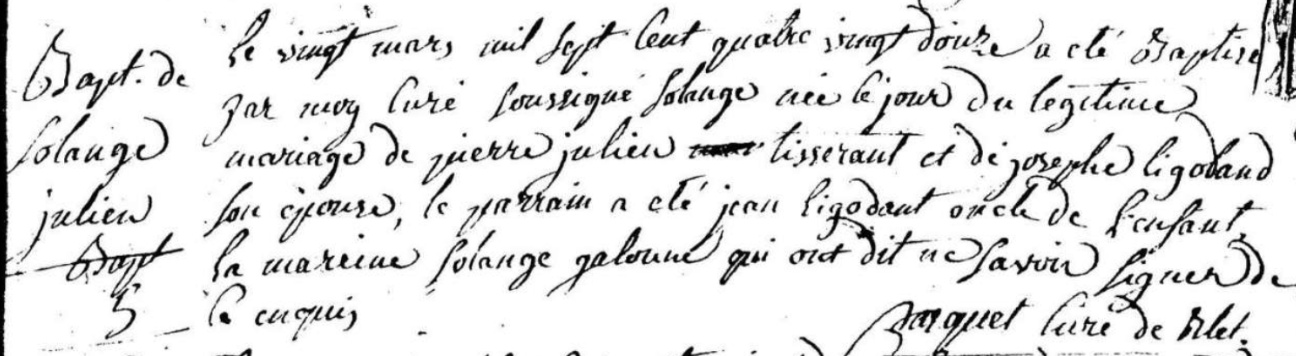 Bapt. de
Solange
julien
Bapt
5
Le vingt mars mil sept Cent quatre vingt douze a eté Baptisé
par moy Curé soussigné Solange née le jour du legitime
mariage de pierre julien tisserant et de josephe ligodand
son epouse, le parrain a eté jean Ligodant oncle de L'enfant,
la mareine Solange galoune qui ont dit ne savoir signer de
ce enquis
Curé de